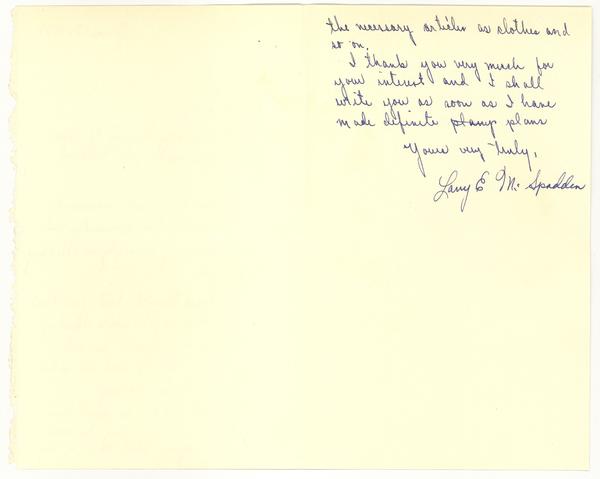 the necessary articles as clothes and
so on.
I thank you very much for
your interest and I shall
write you as soon as I have
made definite plans plans
Yours very truly,
Larry E. McSpadden